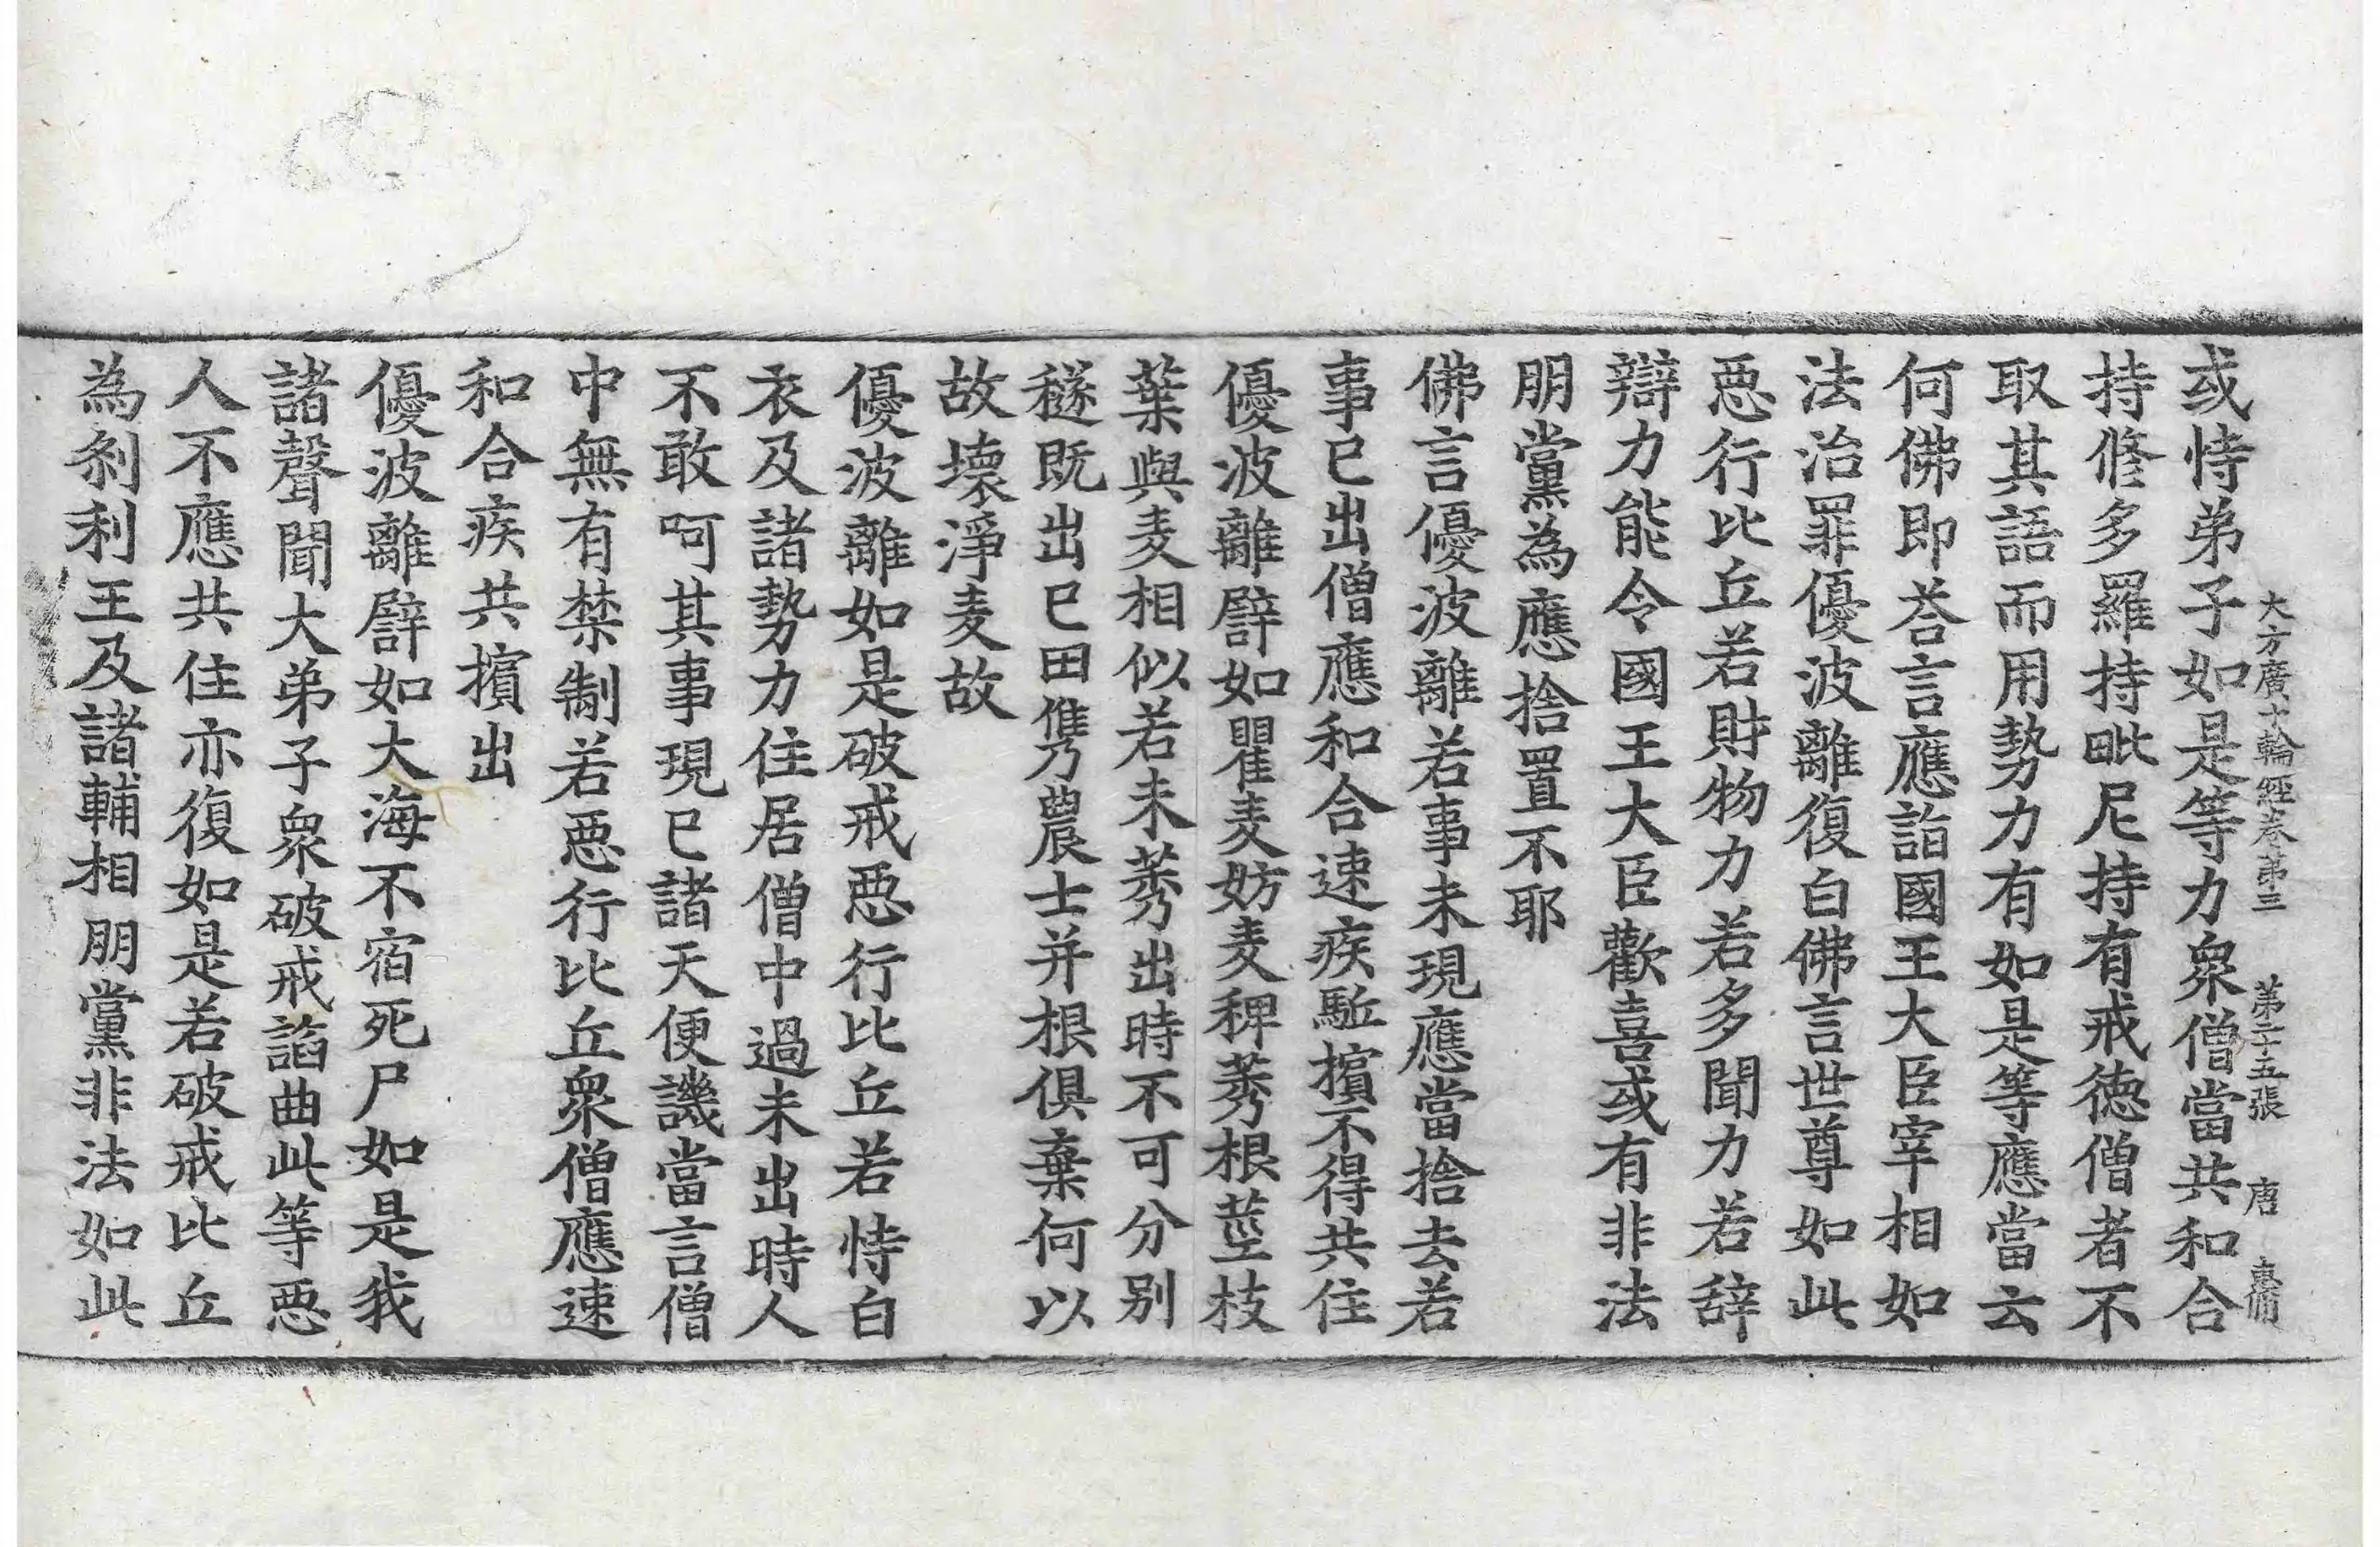 大方廣十輪經卷第三　第二十五張　唐　庸
或恃弟子如是等力衆僧當共和合
持修多羅持毗尼持有戒德僧者不
取其語而用勢力有如是等應當云
何佛即荅言應詣國王大臣宰相如
法治罪優波離復白佛言世尊如此
惡行比丘若財物力若多聞力若辞
辯力能令國王大臣歡喜或有非法
朋黨為應捨置不耶
佛言優波離若事未現應當捨去若
事已出僧應和合速疾駈擯不得共住
優波離譬如瞿麦妨麦稗莠根莖枝
葉與麦相似若未莠出時不可分别
穟既出已田儁農士并根俱棄何以
故壞淨麦故
優波離如是破戒惡行比丘若恃白
衣及諸勢力住居僧中過未出時人
不敢呵其事現已諸天便譏當言僧
中無有禁制若惡行比丘衆僧應速
和合疾共擯出
優波離譬如大海不宿死尸如是我
諸聲聞大弟子衆破戒諂曲此等惡
人不應共住亦復如是若破戒比丘
為刹利王及諸輔相朋黨非法如此